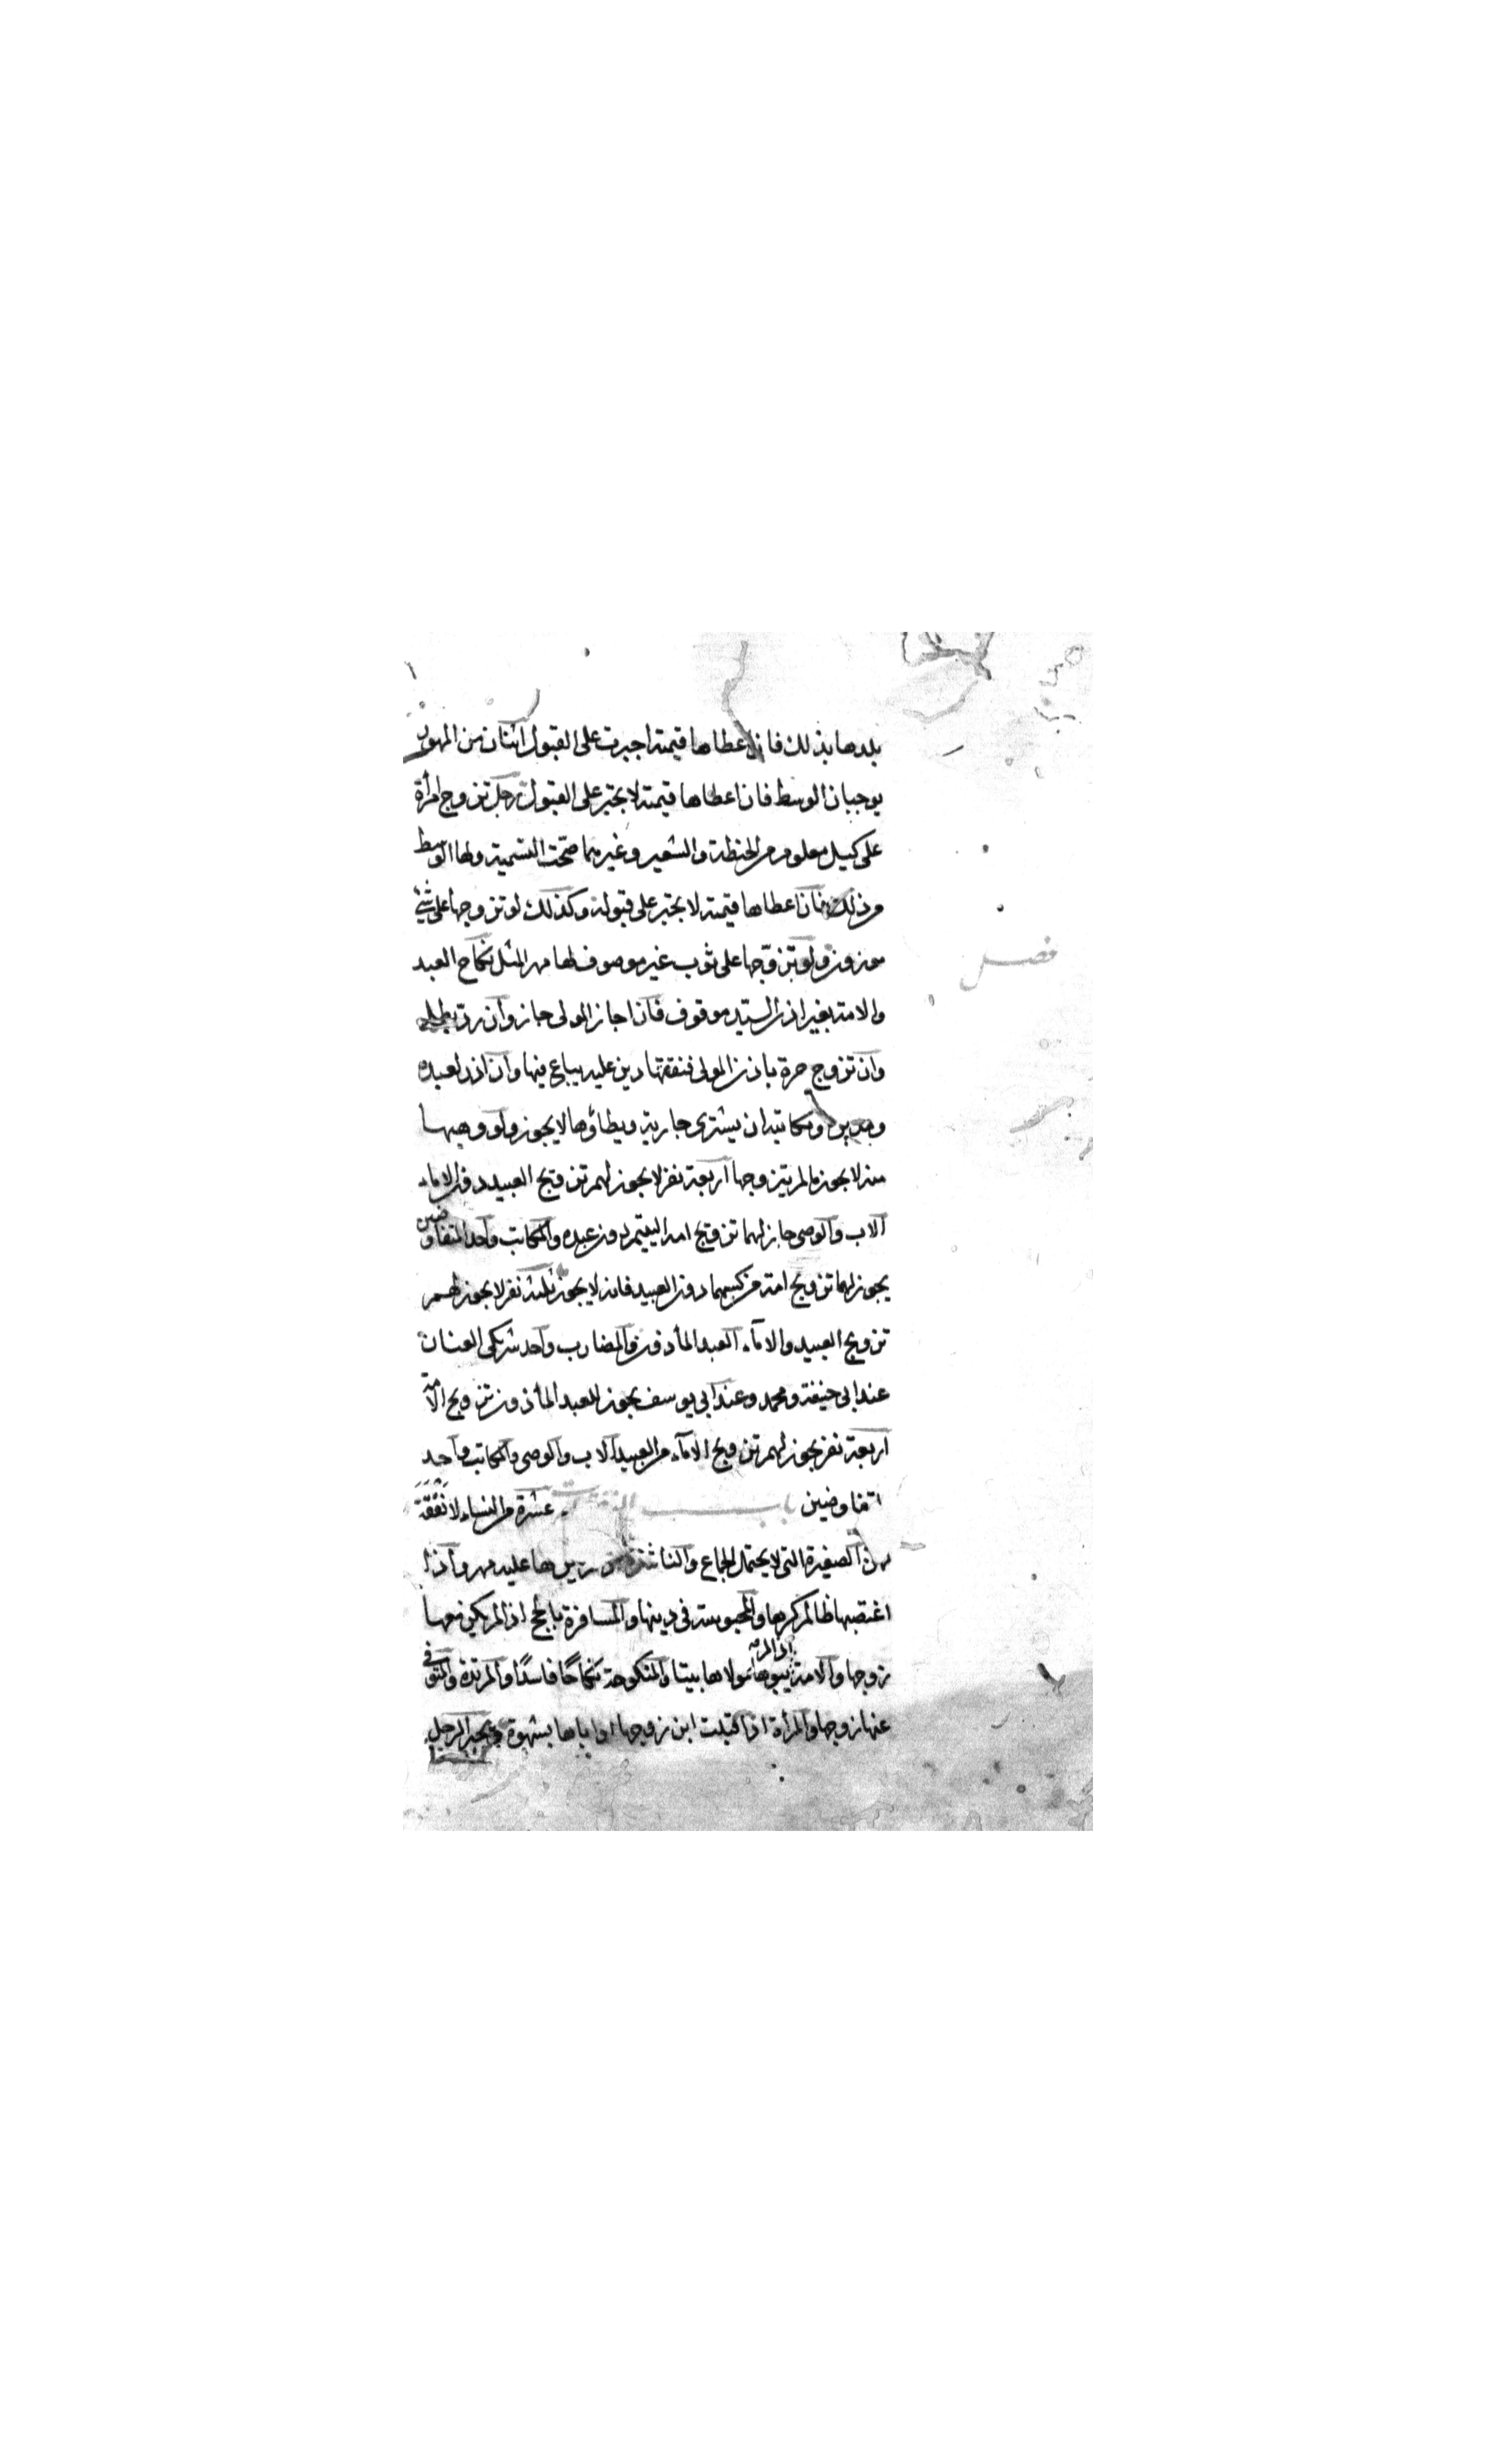 بلدها بذلك فان اعطاها قيمته اجبرت على القبول اثنان من المهور
يوجبان الوسط فان اعطاها قيمته لا يجبر على القبول رجل تزوج امرأة
على كيل معلوم من الحنطة والشعير وغيرهما صحّت التسمية ولها الوسط
من ذلك فان اعطاها قيمته لا يجبر على قبوله وكذلك لو تزوجها على شئ
موزون ولو تزوّجها على ثوب غير موصوف لها مهر المثل نكاح العبد
فصل
والامة بغير اذن السيد موقوف فان اجاز المولى جاز وان ردّ بطل
وان تزوج حرة باذن المولى فنفقتها دين عليه يباع فيها وان اذن لعبده
ومدبره ومكاتبه ان يشترى جارية ويطاؤها لا يجوز ولو وهبها
منه لا يجوز مالم يتزوجها اربعة نفر لا يجوز لهم تزويج العبيد دون الاماء
الاب والوصى جايز لهما تزويج امة اليتيم دون عبده والمكاتب واحد المتفاوضين
يجوز لهما تزويج امة من كسبهما دون العبيد فانه لا يجوز ثلثة نفر لا يجوز لهم
تزويج العبيد والاماء العبد المأذون والمضارب واحد شريكى العنان
عند ابى حنيفة ومحمد وعند ابي يوسف يجوز للعبد المأذون تزويج الامة
اربعة نفر يجوز لهم تزويج الاماء من العبيد الاب والوصى والمكاتب واحد
المتفاوضين باب النفقات عشرة من النساء لا نفقة
لهن الصغيرة التى لا يحتمل الجماع والناشزة عليه مهر واذا
اغتصبها ظالم كرها والمحبوسة فى دينها والمسافرة بالحج اذا لم يكن معها
زوجها والامة اذا لم يبوها مولاها بيتا والمنكوحة نكاحًا فاسدًا والمرتدة والمتوفى
عنها زوجها والمرأة اذا قبلت ابن زوجها او اباها بشهوة ويجبر الرجل